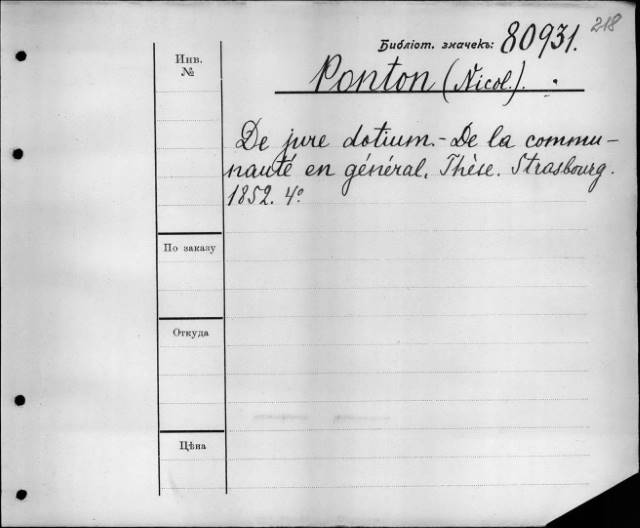 218
Библіот. значекъ: 80931.
Инв.
№
Ponton (Nicol.).
De jure dotium. - De la commu-
nauté en général. Thèse. Strasbourg.
1852. 4º
По заказу
Откуда
Цѣна